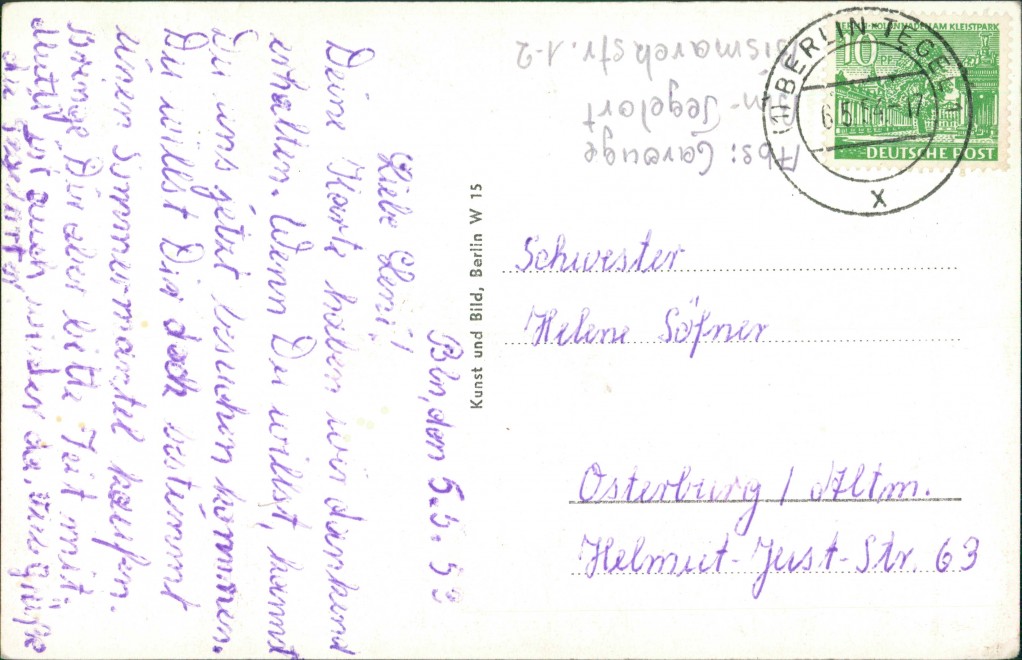 Bln, den 5.5.53
Liebe Leni!
Deine Karte haben wir dankend
erhalten. Wenn Du willst, kannst
Du uns jetzt besuchen kommen.
Du willst Dir doch bestimmt
einen Sommermantel kaufen.
Bringe Dir aber bitte Zeit mit.
ist auch wieder da. Viele Grüße
die Tegelorter
Kunst und Bild, Berlin W 15
Abs: Carouge
Bln-Tegelort
Bismarckstr. 1-2
BERLIN-KOLONNADEN AM KLEISTPARK
10 PF
DEUTSCHE POST
(1) BERLIN-TEGEL 1
x
Schwester
Helene Söfner
Osterburg / Altm.
Helmut-Just-Str. 63